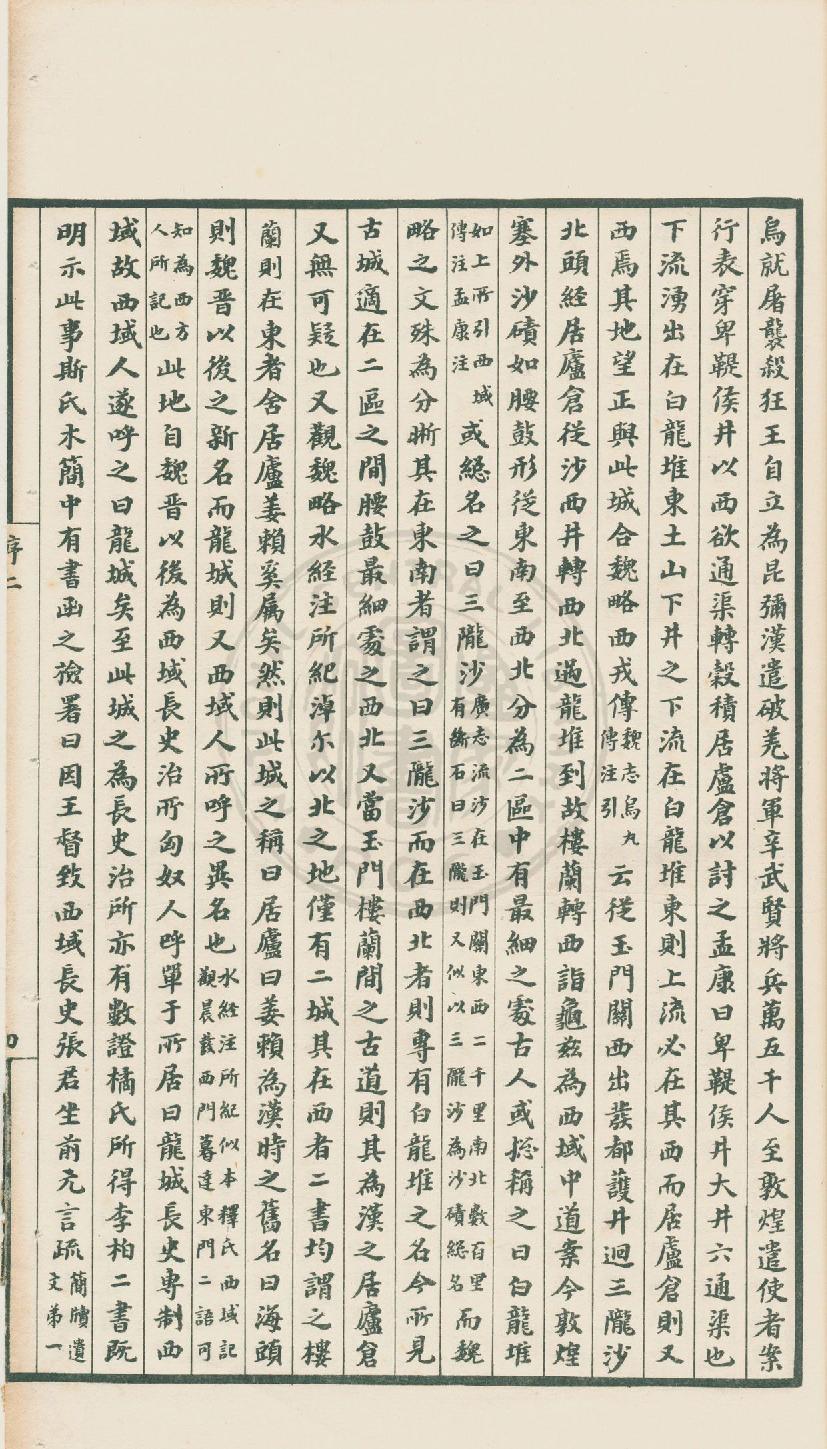 烏就屠襲殺狂王自立為昆彌漢遣破羌將軍辛武賢將兵萬五千人至敦煌遣使者案
行表穿卑鞮侯井以西欲通渠轉穀積居盧倉以討之孟康曰卑鞮侯井大井六通渠也
下流湧出在白龍堆東土山下井之下流在白龍堆東則上流必在其西而居盧倉則又
西焉其地望正與此城合魏略西戎傳魏志烏丸傳注引云從玉門關西出發都護井迴三隴沙
北頭經居廬倉從沙西井轉西北過龍堆到故樓蘭轉西詣龜茲為西域中道案今敦煌
塞外沙磧如腰鼓形從東南至西北分為二區中有最細之處古人或總稱之曰白龍堆
如上所引西域傳注孟康注或總名之曰三隴沙廣志流沙在玉門關東西二千里南北數百里有斷石曰三隴則又似以三隴沙為沙磧總名而魏
略之文殊為分晰其在東南者謂之曰三隴沙而在西北者則專有白龍堆之名今所見
古城適在二區之間腰鼓最細處之西北又當玉門樓蘭間之古道則其為漢之居廬倉
又無可疑也又觀魏略水經注所紀淖尔以北之地僅有二城其在西者二書均謂之樓
蘭則在東者舍居廬姜賴奚屬矣然則此城之稱曰居廬曰姜賴為漢時之舊名曰海頭
則魏晋以後之新名而龍城則又西域人所呼之異名也水經注所紀似本釋氏西域記觀晨發西門暮達東門二語可
知為西方人所記也此地自魏晋以後為西域長史治所匈奴人呼單于所居曰龍城長史專制西
域故西域人遂呼之曰龍城矣至此城之為長史治所亦有數證橘氏所得李柏二書既
明示此事斯氏木簡中有書函之檢署曰因王督致西域長史張君坐前元言疏簡牘遺文第一
序二